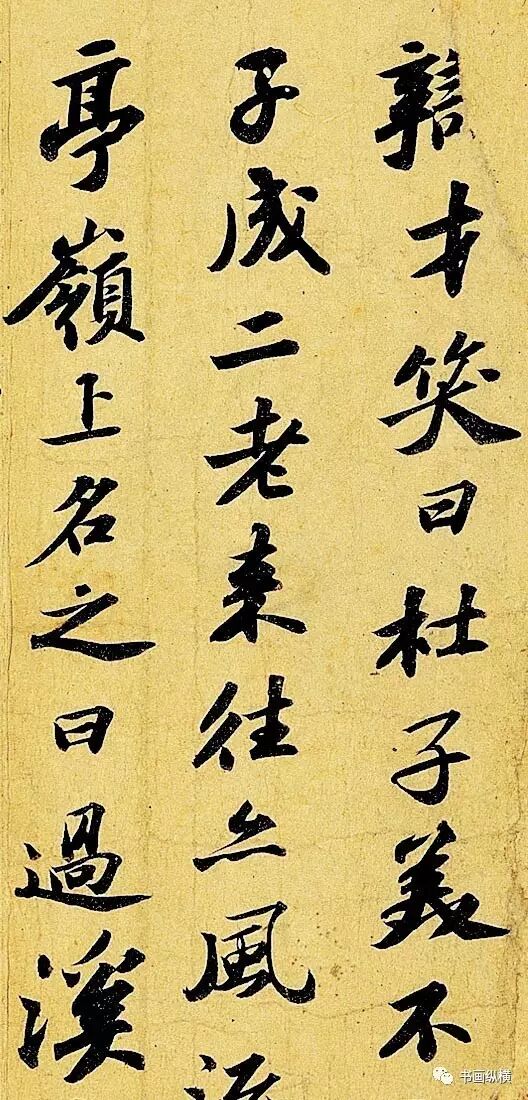 辯才笑曰杜子美不
子成二老来往亦風流
亭嶺上名之曰過溪
书画纵横